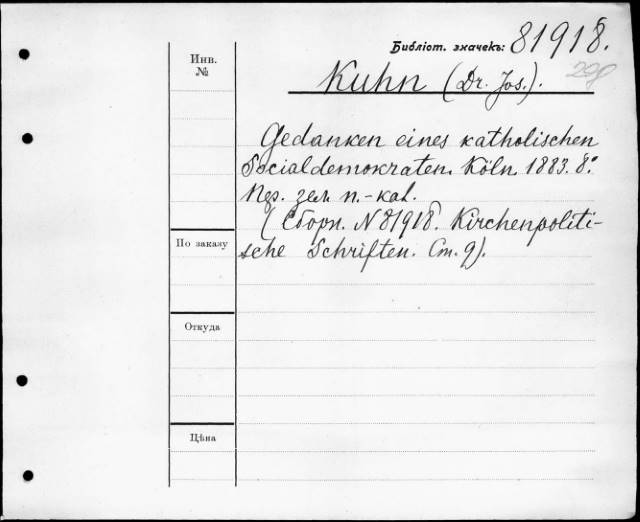 Библіот. значекъ: 81918.
Инв.
№
Kuhn (Dr. Jos.).
Gedanken eines katholischen
Socialdemokraten. Köln. 1883. 8.°
зел. п.-каl.
(Сборн. N 81918. Kirchenpoliti-
sche Schriften. Ст. 9).
По заказу
Откуда
Цѣна